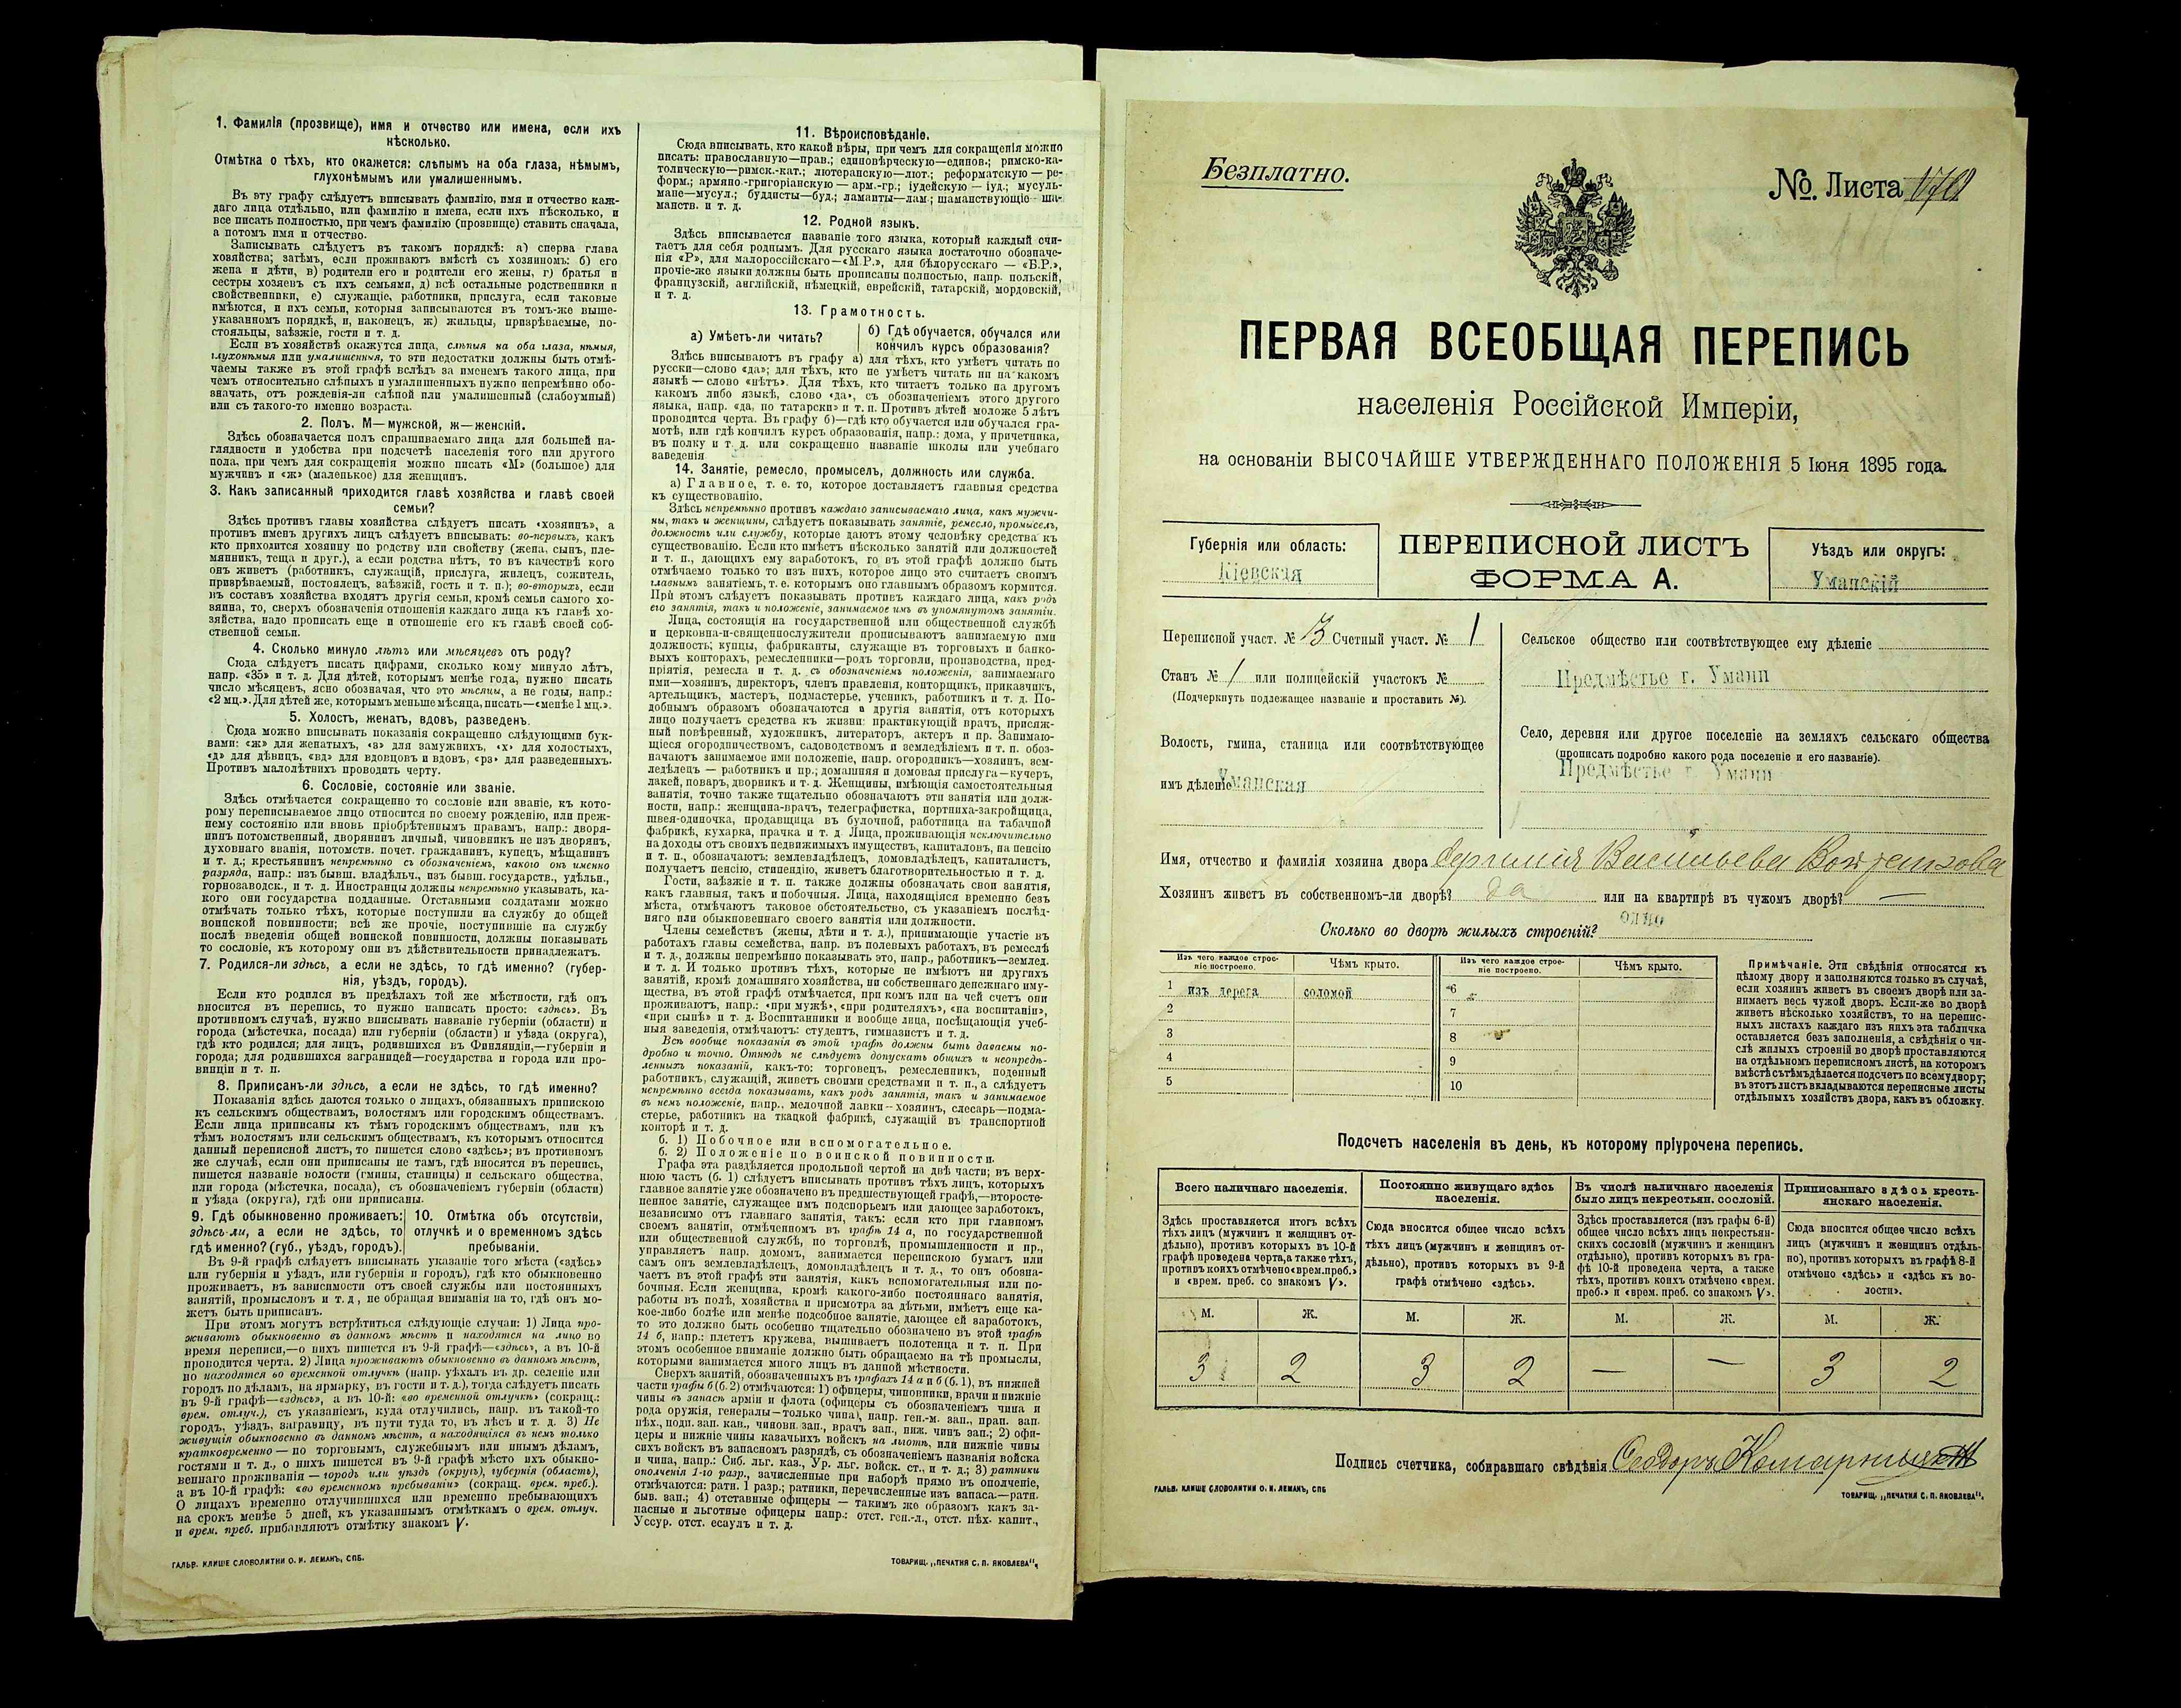 1. Фамилія (прозвище), имя и отчество или имена, если ихъ
нѣсколько.
Отмѣтка о тѣхъ, кто окажется: слѣпымъ на оба глаза, нѣмымъ,
глухонѣмымъ или умалишеннымъ.
Въ эту графу слѣдуетъ вписывать фамилію, имя и отчество каж-
даго лица отдѣльно, или фамилію и имена, если ихъ нѣсколько, и
все писать полностью, при чемъ фамилію (прозвище) ставить сначала,
а потомъ имя и отчество.
Записывать слѣдуетъ въ такомъ порядкѣ: а) сперва глава
хозяйства; затѣмъ, если проживаютъ вмѣстѣ съ хозяиномъ: б) его
жена и дѣти, в) родители его и родители его жены, г) братья и
сестры хозяевъ съ ихъ семьями, д) всѣ остальные родственники и
свойственники, е) служащіе, работники, прислуга, если таковые
имѣются, и ихъ семьи, которыя записываются въ томъ-же выше-
указанномъ порядкѣ, и, наконецъ, ж) жильцы, призрѣваемые, по-
стояльцы, заѣзжіе, гости и т. п.
Если въ хозяйствѣ окажутся лица, слѣпыя на оба глаза, нѣмыя,
глухонѣмыя или умалишенныя, то эти недостатки должны быть отмѣ-
чаемы также въ этой графѣ вслѣдъ за именемъ такого лица, при
чемъ относительно слѣпыхъ и умалишенныхъ нужно непремѣнно обо-
значать, отъ рожденія-ли слѣпой или умалишенный (слабоумный)
или съ такого-то именно возраста.
2. Полъ. М—мужской, ж—женскій.
Здѣсь обозначается полъ спрашиваемаго лица для большей на-
глядности и удобства при подсчетѣ населенія того или другого
пола, при чемъ для сокращенія можно писать «М» (большое) для
мужчинъ и «ж» (маленькое) для женщинъ.
3. Какъ записанный приходится главѣ хозяйства и главѣ своей
семьи?
Здѣсь противъ главы хозяйства слѣдуетъ писать «хозяинъ», а
противъ именъ другихъ лицъ слѣдуетъ вписывать: во-первыхъ, какъ
кто приходится хозяину по родству или свойству (жена, сынъ, пле-
мянникъ, теща и друг.), а если родства нѣтъ, то въ качествѣ кого
онъ живетъ (работникъ, служащій, прислуга, жилецъ, сожитель,
призрѣваемый, постоялецъ, заѣзжій, гость и т. п.); во-вторыхъ, если
въ составъ хозяйства входятъ другія семьи, кромѣ семьи самого хо-
зяина, то, сверхъ обозначенія отношенія каждаго лица къ главѣ хо-
зяйства, надо прописать еще и отношеніе его къ главѣ своей соб-
ственной семьи.
4. Сколько минуло лѣтъ или мѣсяцевъ отъ роду?
Сюда слѣдуетъ писать цифрами, сколько кому минуло лѣтъ,
напр. «35» и т. д. Для дѣтей, которымъ менѣе года, нужно писать
число мѣсяцевъ, ясно обозначая, что это мѣсяцы, а не годы, напр.:
«2 мц.». Для дѣтей же, которымъ меньше мѣсяца, писать—«менѣе 1 мц.».
5. Холостъ, женатъ, вдовъ, разведенъ.
Сюда можно вписывать показанія сокращенно слѣдующими бук-
вами: «ж» для женатыхъ, «з» для замужнихъ, «х» для холостыхъ,
«д» для дѣвицъ, «вд» для вдовцовъ и вдовъ, «рз» для разведенныхъ.
Противъ малолѣтнихъ проводить черту.
6. Сословіе, состояніе или званіе.
Здѣсь отмѣчается сокращенно то сословіе или званіе, къ кото-
рому переписываемое лицо относится по своему рожденію, или преж-
нему состоянію или вновь пріобрѣтеннымъ правамъ, напр.: дворя-
нинъ потомственный, дворянинъ личный, чиновникъ не изъ дворянъ,
духовнаго званія, потомств. почет. гражданинъ, купецъ, мѣщанинъ
и т. д.; крестьянинъ непремѣнно съ обозначеніемъ, какого онъ именно
разряда, напр.: изъ бывш. владѣльч., изъ бывш. государств., удѣльн.,
горнозаводск., и т. д. Иностранцы должны непремѣнно указывать, ка-
кого они государства подданные. Отставными солдатами можно
отмѣчать только тѣхъ, которые поступили на службу до общей
воинской повинности; всѣ же прочіе, поступившіе на службу
послѣ введенія общей воинской повинности, должны показывать
то сословіе, къ которому они въ дѣйствительности принадлежатъ.
7. Родился-ли здѣсь, а если не здѣсь, то гдѣ именно? (губер-
нія, уѣздъ, городъ).
Если кто родился въ предѣлахъ той же мѣстности, гдѣ онъ
вносится въ перепись, то нужно написать просто: «здѣсь». Въ
противномъ случаѣ, нужно вписывать названіе губерніи (области) и
города (мѣстечка, посада) или губерніи (области) и уѣзда (округа),
гдѣ кто родился; для лицъ, родившихся въ Финляндіи,—губерніи и
города; для родившихся заграницей—государства и города или про-
винціи и т. п.
8. Приписанъ-ли здѣсь, а если не здѣсь, то гдѣ именно?
Показанія здѣсь даются только о лицахъ, обязанныхъ припискою
къ сельскимъ обществамъ, волостямъ или городскимъ обществамъ.
Если лица приписаны къ тѣмъ городскимъ обществамъ, или къ
тѣмъ волостямъ или сельскимъ обществамъ, къ которымъ относится
данный переписной листъ, то пишется слово «здѣсь»; въ противномъ
же случаѣ, если они приписаны не тамъ, гдѣ вносятся въ перепись,
пишется названіе волости (гмины, станицы) и сельскаго общества,
или города (мѣстечка, посада), съ обозначеніемъ губерніи (области)
и уѣзда (округа), гдѣ они приписаны.
9. Гдѣ обыкновенно проживаетъ:
здѣсь-ли, а если не здѣсь, то
гдѣ именно? (губ., уѣздъ, городъ).
10. Отмѣтка объ отсутствіи,
отлучкѣ и о временномъ здѣсь
пребываніи.
Въ 9-й графѣ слѣдуетъ вписывать указаніе того мѣста («здѣсь»
или губернія и уѣздъ, или губернія и городъ), гдѣ кто обыкновенно
проживаетъ, въ зависимости отъ своей службы или постоянныхъ
занятій, промысловъ и т. д., не обращая вниманія на то, гдѣ онъ мо-
жетъ быть приписанъ.
При этомъ могутъ встрѣтиться слѣдующіе случаи: 1) Лица про-
живаютъ обыкновенно въ данномъ мѣстѣ и находятся на лицо во
время переписи,—о нихъ пишется въ 9-й графѣ—«здѣсь», а въ 10-й
проводится черта. 2) Лица проживаютъ обыкновенно въ данномъ мѣстѣ,
но находятся во временной отлучкѣ (напр. уѣхалъ въ др. селеніе или
городъ по дѣламъ, на ярмарку, въ гости и т. д.), тогда слѣдуетъ писать
въ 9-й графѣ—«здѣсь», а въ 10-й: «во временной отлучкѣ» (сокращ.:
врем. отлуч.), съ указаніемъ, куда отлучились, напр. въ такой-то
городъ, уѣздъ, заграницу, въ пути туда то, въ лѣсъ и т. д. 3) Не
живущія обыкновенно въ данномъ мѣстѣ, а находящіяся въ немъ только
кратковременно — по торговымъ, служебнымъ или инымъ дѣламъ,
гостями и т. д., о нихъ пишется въ 9-й графѣ мѣсто ихъ обыкно-
веннаго проживанія — городъ или уѣздъ (округъ), губернія (область),
а въ 10-й графѣ: «во временномъ пребываніи» (сокращ. врем. преб.).
О лицахъ временно отлучившихся или временно пребывающихъ
на срокъ менѣе 5 дней, къ указаннымъ отмѣткамъ о врем. отлуч.
и врем. преб. прибавляютъ отмѣтку знакомъ V.
ГАЛЬВ. КЛИШЕ СЛОВОЛИТНИ О. И. ЛЕМАНЪ, СПБ.
11. Вѣроисповѣданіе.
Сюда вписывать, кто какой вѣры, при чемъ для сокращенія можно
писать: православную—прав.; единовѣрческую—единов.; римско-ка-
толическую—римск.-кат.; лютеранскую—лют.; реформатскую — ре-
форм.; армяно-григоріанскую — арм.-гр.; іудейскую — іуд.; мусуль-
мане—мусул.; буддисты—буд.; ламаиты—лам.; шаманствующіе—ша-
манств. и т. д.
12. Родной языкъ.
Здѣсь вписывается названіе того языка, который каждый счи-
таетъ для себя роднымъ. Для русскаго языка достаточно обозначе-
нія «Р», для малороссійскаго—«М.Р.», для бѣлорусскаго — «Б.Р.»,
прочіе-же языки должны быть прописаны полностью, напр. польскій,
французскій, англійскій, нѣмецкій, еврейскій, татарскій, мордовскій,
и т. д.
13. Грамотность.
а) Умѣетъ-ли читать?
б) Гдѣ обучается, обучался или
кончилъ курсъ образованія?
Здѣсь вписываютъ въ графу а) для тѣхъ, кто умѣетъ читать по
русски—слово «да»; для тѣхъ, кто не умѣетъ читать ни на какомъ
языкѣ — слово «нѣтъ». Для тѣхъ, кто читаетъ только на другомъ
какомъ либо языкѣ, слово «да», съ обозначеніемъ этого другого
языка, напр. «да, по татарски» и т. п. Противъ дѣтей моложе 5 лѣтъ
проводится черта. Въ графу б)—гдѣ кто обучается или обучался гра-
мотѣ, или гдѣ кончилъ курсъ образованія, напр.: дома, у причетника,
въ полку и т. д. или сокращенно названіе школы или учебнаго
заведенія
14. Занятіе, ремесло, промыселъ, должность или служба.
а) Главное, т. е. то, которое доставляетъ главныя средства
къ существованію.
Здѣсь непремѣнно противъ каждаго записываемаго лица, какъ мужчи-
ны, такъ и женщины, слѣдуетъ показывать занятіе, ремесло, промыселъ,
должность или службу, которые даютъ этому человѣку средства къ
существованію. Если кто имѣетъ нѣсколько занятій или должностей
и т. п., дающихъ ему заработокъ, то въ этой графѣ должно быть
отмѣчаемо только то изъ нихъ, которое лицо это считаетъ своимъ
главнымъ занятіемъ, т. е. которымъ оно главнымъ образомъ кормится.
При этомъ слѣдуетъ показывать противъ каждаго лица, какъ родъ
его занятія, такъ и положеніе, занимаемое имъ въ упомянутомъ занятіи.
Лица, состоящія на государственной или общественной службѣ
и церковно-и-священнослужители прописываютъ занимаемую ими
должность; купцы, фабриканты, служащіе въ торговыхъ и банко-
выхъ конторахъ, ремесленники—родъ торговли, производства, пред-
пріятія, ремесла и т. д. съ обозначеніемъ положенія, занимаемаго
ими—хозяинъ, директоръ, членъ правленія, конторщикъ, приказчикъ,
артельщикъ, мастеръ, подмастерье, ученикъ, работникъ и т. д. По-
добнымъ образомъ обозначаются и другія занятія, отъ которыхъ
лицо получаетъ средства къ жизни: практикующій врачъ, присяж-
ный повѣренный, художникъ, литераторъ, актеръ и пр. Занимаю-
щіеся огородничествомъ, садоводствомъ и земледѣліемъ и т. п. обоз-
начаютъ занимаемое ими положеніе, напр. огородникъ—хозяинъ, зем-
ледѣлецъ — работникъ и пр.; домашняя и домовая прислуга—кучеръ,
лакей, поваръ, дворникъ и т. д. Женщины, имѣющія самостоятельныя
занятія, точно также тщательно обозначаютъ эти занятія или долж-
ности, напр.: женщина-врачъ, телеграфистка, портниха-закройщица,
швея-одиночка, продавщица въ булочной, работница на табачной
фабрикѣ, кухарка, прачка и т. д. Лица, проживающія исключительно
на доходы отъ своихъ недвижимыхъ имуществъ, капиталовъ, на пенсію
и т. п., обозначаютъ: землевладѣлецъ, домовладѣлецъ, капиталистъ,
получаетъ пенсію, стипендію, живетъ благотворительностью и т. д.
Гости, заѣзжіе и т. п. также должны обозначать свои занятія,
какъ главныя, такъ и побочныя. Лица, находящіяся временно безъ
мѣста, отмѣчаютъ таковое обстоятельство, съ указаніемъ послѣд-
няго или обыкновеннаго своего занятія или должности.
Члены семействъ (жены, дѣти и т. д.), принимающіе участіе въ
работахъ главы семейства, напр. въ полевыхъ работахъ, въ ремеслѣ
и т. д., должны непремѣнно показывать это, напр., работникъ—землед.
и т. д. И только противъ тѣхъ, которые не имѣютъ ни другихъ
занятій, кромѣ домашняго хозяйства, ни собственнаго денежнаго иму-
щества, въ этой графѣ отмѣчается, при комъ или на чей счетъ они
проживаютъ, напр.: «при мужѣ», «при родителяхъ», «на воспитаніи»,
«при сынѣ» и т. д. Воспитанники и вообще лица, посѣщающія учеб-
ныя заведенія, отмѣчаютъ: студентъ, гимназистъ и т. д.
Всѣ вообще показанія въ этой графѣ должны быть даваемы по-
дробно и точно. Отнюдь не слѣдуетъ допускать общихъ и неопредѣ-
ленныхъ показаній, какъ-то: торговецъ, ремесленникъ, поденный
работникъ, служащій, живетъ своими средствами и т. п., а слѣдуетъ
непремѣнно всегда показывать, какъ родъ занятія, такъ и занимаемое
въ немъ положеніе, напр., мелочной лавки—хозяинъ, слесарь—подма-
стерье, работникъ на ткацкой фабрикѣ, служащій въ транспортной
конторѣ и т. д.
б. 1) Побочное или вспомогательное.
б. 2) Положеніе по воинской повинности.
Графа эта раздѣляется продольной чертой на двѣ части; въ верх-
нюю часть (б. 1) слѣдуетъ вписывать противъ тѣхъ лицъ, которыхъ
главное занятіе уже обозначено въ предшествующей графѣ,—второсте-
пенное занятіе, служащее имъ подспорьемъ или дающее заработокъ,
независимо отъ главнаго занятія, такъ: если кто при главномъ
своемъ занятіи, отмѣченномъ въ графѣ 14 а, по государственной
или общественной службѣ, по торговлѣ, промышленности и пр.,
управляетъ напр. домомъ, занимается перепискою бумагъ или
самъ онъ землевладѣлецъ, домовладѣлецъ и т. д., то онъ обозна-
чаетъ въ этой графѣ эти занятія, какъ вспомогательныя или по-
бочныя. Если женщина, кромѣ какого-либо постояннаго занятія,
работы въ полѣ, хозяйства и присмотра за дѣтьми, имѣетъ еще ка-
кое-либо болѣе или менѣе подсобное занятіе, дающее ей заработокъ,
то это должно быть особенно тщательно обозначено въ этой графѣ
14 б, напр.: плететъ кружева, вышиваетъ полотенца и т. п. При
этомъ особенное вниманіе должно быть обращаемо на тѣ промыслы,
которыми занимается много лицъ въ данной мѣстности.
Сверхъ занятій, обозначенныхъ въ графахъ 14 а и б (б. 1), въ нижней
части графы б (б. 2) отмѣчаются: 1) офицеры, чиновники, врачи и нижніе
чины въ запасѣ арміи и флота (офицеры съ обозначеніемъ чина и
рода оружія, генералы—только чина), напр. ген.-м. зап., прап. зап.
пѣх., подп. зап. кав., чиновн. зап., врачъ зап., ниж. чинъ зап.; 2) офи-
церы и нижніе чины казачьихъ войскъ на льготѣ, или нижніе чины
сихъ войскъ въ запасномъ разрядѣ, съ обозначеніемъ названія войска
и чина, напр.: Сиб. льг. каз., Ур. льг. войск. ст., и т. д.; 3) ратники
ополченія 1-го разр., зачисленные при наборѣ прямо въ ополченіе,
отмѣчаются: ратн. 1 разр.; ратники, перечисленные изъ запаса.—ратн.
быв. зап.; 4) отставные офицеры — такимъ же образомъ какъ за-
пасные и льготные офицеры напр.: отст. ген.-л., отст. пѣх. капит.,
Уссур. отст. есаулъ и т. д.
ТОВАРИЩ. „ПЕЧАТНЯ С. П. ЯКОВЛЕВА“.
Безплатно.
№. Листа
ПЕРВАЯ ВСЕОБЩАЯ ПЕРЕПИСЬ
населенія Россійской Имперіи,
на основаніи ВЫСОЧАЙШЕ УТВЕРЖДЕННАГО ПОЛОЖЕНІЯ 5 Іюня 1895 года.
Губернія или область:
Кіевская
ПЕРЕПИСНОЙ ЛИСТЪ
ФОРМА А.
Уѣздъ или округъ:
Уманскій
Переписной участ. № 13 Счетный участ. № 1
Станъ № 1 или полицейскій участокъ №
(Подчеркнуть подлежащее названіе и проставить №).
Волость, гмина, станица или соотвѣтствующее
имъ дѣленіе Уманская
Сельское общество или соотвѣтствующее ему дѣленіе
Предмѣстье г. Умани
Село, деревня или другое поселеніе на земляхъ сельскаго общества
(прописать подробно какого рода поселеніе и его названіе).
Предмѣстье г. Умани
Имя, отчество и фамилія хозяина двора Васильева
Хозяинъ живетъ въ собственномъ-ли дворѣ? да или на квартирѣ въ чужомъ дворѣ? —
Сколько во дворѣ жилыхъ строеній? одно
Изъ чего каждое строе-
ніе построено.
Чѣмъ крыто.
Изъ чего каждое строе-
ніе построено.
Чѣмъ крыто.
1 изъ дерева соломой 6
2 7
3 8
4 9
5 10
Примѣчаніе. Эти свѣдѣнія относятся къ
цѣлому двору и заполняются только въ случаѣ,
если хозяинъ живетъ въ своемъ дворѣ или за-
нимаетъ весь чужой дворъ. Если-же во дворѣ
живетъ нѣсколько хозяйствъ, то на перепис-
ныхъ листахъ каждаго изъ нихъ эта табличка
оставляется безъ заполненія, а свѣдѣнія о чи-
слѣ жилыхъ строеній во дворѣ проставляются
на отдѣльномъ переписномъ листѣ, на которомъ
вмѣстѣ съ тѣмъ дѣлается подсчетъ по всему двору;
въ этотъ листъ вкладываются переписные листы
отдѣльныхъ хозяйствъ двора, какъ въ обложку.
Подсчетъ населенія въ день, къ которому пріурочена перепись.
Всего наличнаго населенія.
Постоянно живущаго здѣсь
населенія.
Въ числѣ наличнаго населенія
было лицъ некрестьян. сословій.
Приписаннаго здѣсь кресть-
янскаго населенія.
Здѣсь проставляется итогъ всѣхъ
тѣхъ лицъ (мужчинъ и женщинъ от-
дѣльно), противъ которыхъ въ 10-й
графѣ проведена черта, а также тѣхъ,
противъ коихъ отмѣчено «врем. преб.»
и «врем. преб. со знакомъ V».
Сюда вносится общее число всѣхъ
тѣхъ лицъ (мужчинъ и женщинъ от-
дѣльно), противъ которыхъ въ 9-й
графѣ отмѣчено «здѣсь».
Здѣсь проставляется (изъ графы 6-й)
общее число всѣхъ лицъ некрестьян-
скихъ сословій (мужчинъ и женщинъ
отдѣльно), противъ которыхъ въ гра-
фѣ 10-й проведена черта, а также
тѣхъ, противъ коихъ отмѣчено «врем.
преб.» и «врем. преб. со знакомъ V».
Сюда вносится общее число всѣхъ
лицъ (мужчинъ и женщинъ отдѣль-
но), противъ которыхъ въ графѣ 8-й
отмѣчено «здѣсь» и «здѣсь къ во-
лости».
М. Ж. М. Ж. М. Ж. М. Ж.
3 2 3 2 — — 3 2
Подпись счетчика, собиравшаго свѣдѣнія Ѳеодоръ
ГАЛЬВ. КЛИШЕ СЛОВОЛИТНИ О. И. ЛЕМАНЪ, СПБ
ТОВАРИЩ. „ПЕЧАТНЯ С. П. ЯКОВЛЕВА“.